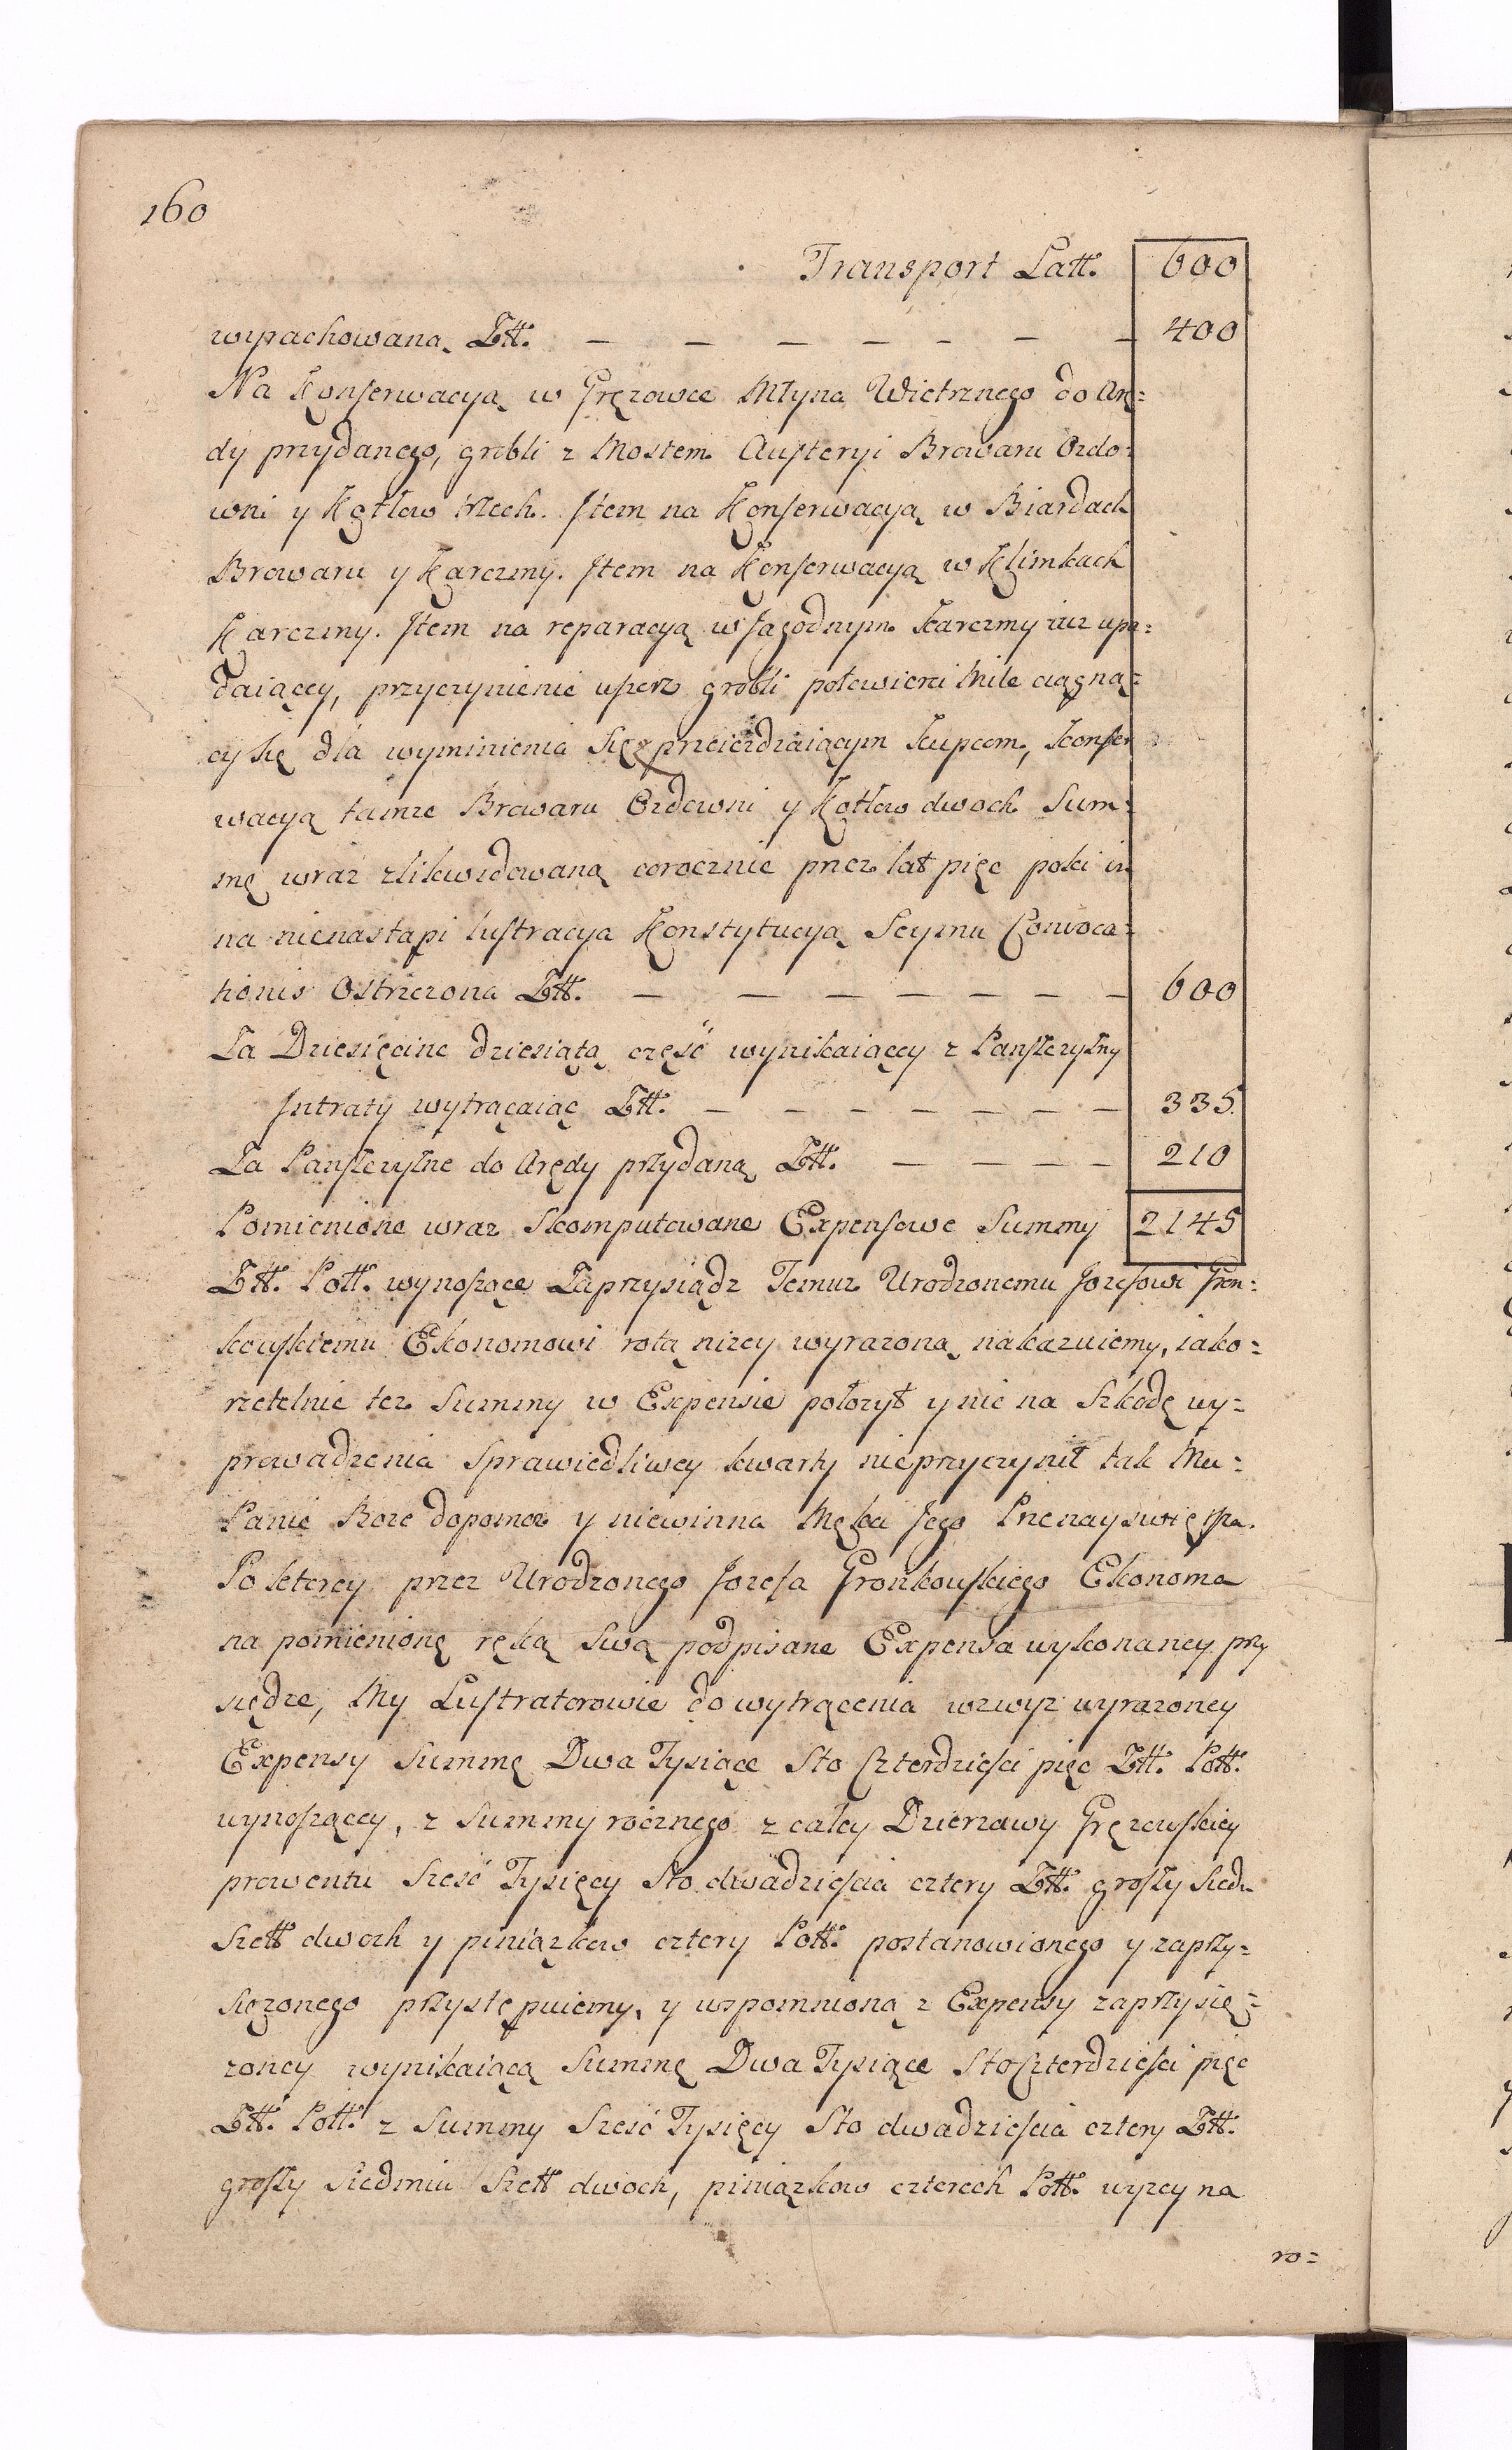 160
Transport Latt. 600
wypachowaną Ztt. — — — — — — — 400
Na Konserwacyą w Gręzowce Młyna Wietrznego do Arę=
dy przydanego, grobli z Mostem Austeryi Browaru Ozdo=
wni y Kotłow trzech. Item na Konserwacyą w Biardach
Browaru y Karczmy. Item na Konserwacyą w Klimkach
Karczmy. Item na reparacyą w Jagodnym karczmy iuz upa=
daiącey, przyczynienie grobli połcwierci Mile ciągną=
cy się dla wyminienia się przeieżdzaiącym kupcom, konser
wacyą tamże Browaru Ozdowni y Kotłow dwoch Sum=
mę wraz zlikwidowaną corocznie przez lat pięc poki in
na nienastąpi lustracya Konstytucyą Seymu Convoca=
tionis Ostrzezona Ztt. — — — — — — — 600
Za Dziesięcine dziesiątą część wynikaiącey z Panszczyzny
Intraty wytrącaiąc Ztt. — — — — — — — 335.
Za Panszczyzne do Arędy przydaną Ztt. — — — — 210
Pomienione wraz Skomputowane Expensowe Summy 2145
Ztt. Pott. wynoszące Zaprzysiądz Temuz Urodzonemu Jozefowi Gron=
kowskiemu Ekonomowi rotą nizey wyrazoną nakazuiemy, iako=
rzetelnie tez Summy w Expensie położył y nic na Szkodę wy=
prowadzenia Sprawiedliwey kwarty nieprzyczynił tak Mu=
Panie Boze dopomoz y niewinna Męka Jego Przenayswiętsza.
Po ktorey przez Urodzonego Jozefa Gronkowskiego Ekonoma
na pomienionę ręką Swą podpisane Expensa wykonaney przy
siędze, My Lustratorowie do wytrącenia wzwyz wyrazoney
Expensy Summę Dwa Tysiące Sto Czterdzieści pięc Ztt. Pott.
wynoszącey, z Summy rocznego z całey Dzierzawy Gręzowskiey
prowentu Sześć Tysięcy Sto dwadzieścia cztery Ztt. groszy Siedm
Szett dwoch y piniązkow cztery Pott. postanowionego y zaprzy=
sięzonego przystępuiemy, y wspomnioną z Expensy zaprzysię=
zoney wynikaiącą Summę Dwa Tysiące Sto Czterdzieści pięc
Ztt. Pott. z Summy Sześć Tysięcy Sto dwadzieścia cztery Ztt.
groszy Siedmiu Szett dwoch, piniązkow czterech Pott. wyzey na
ro=